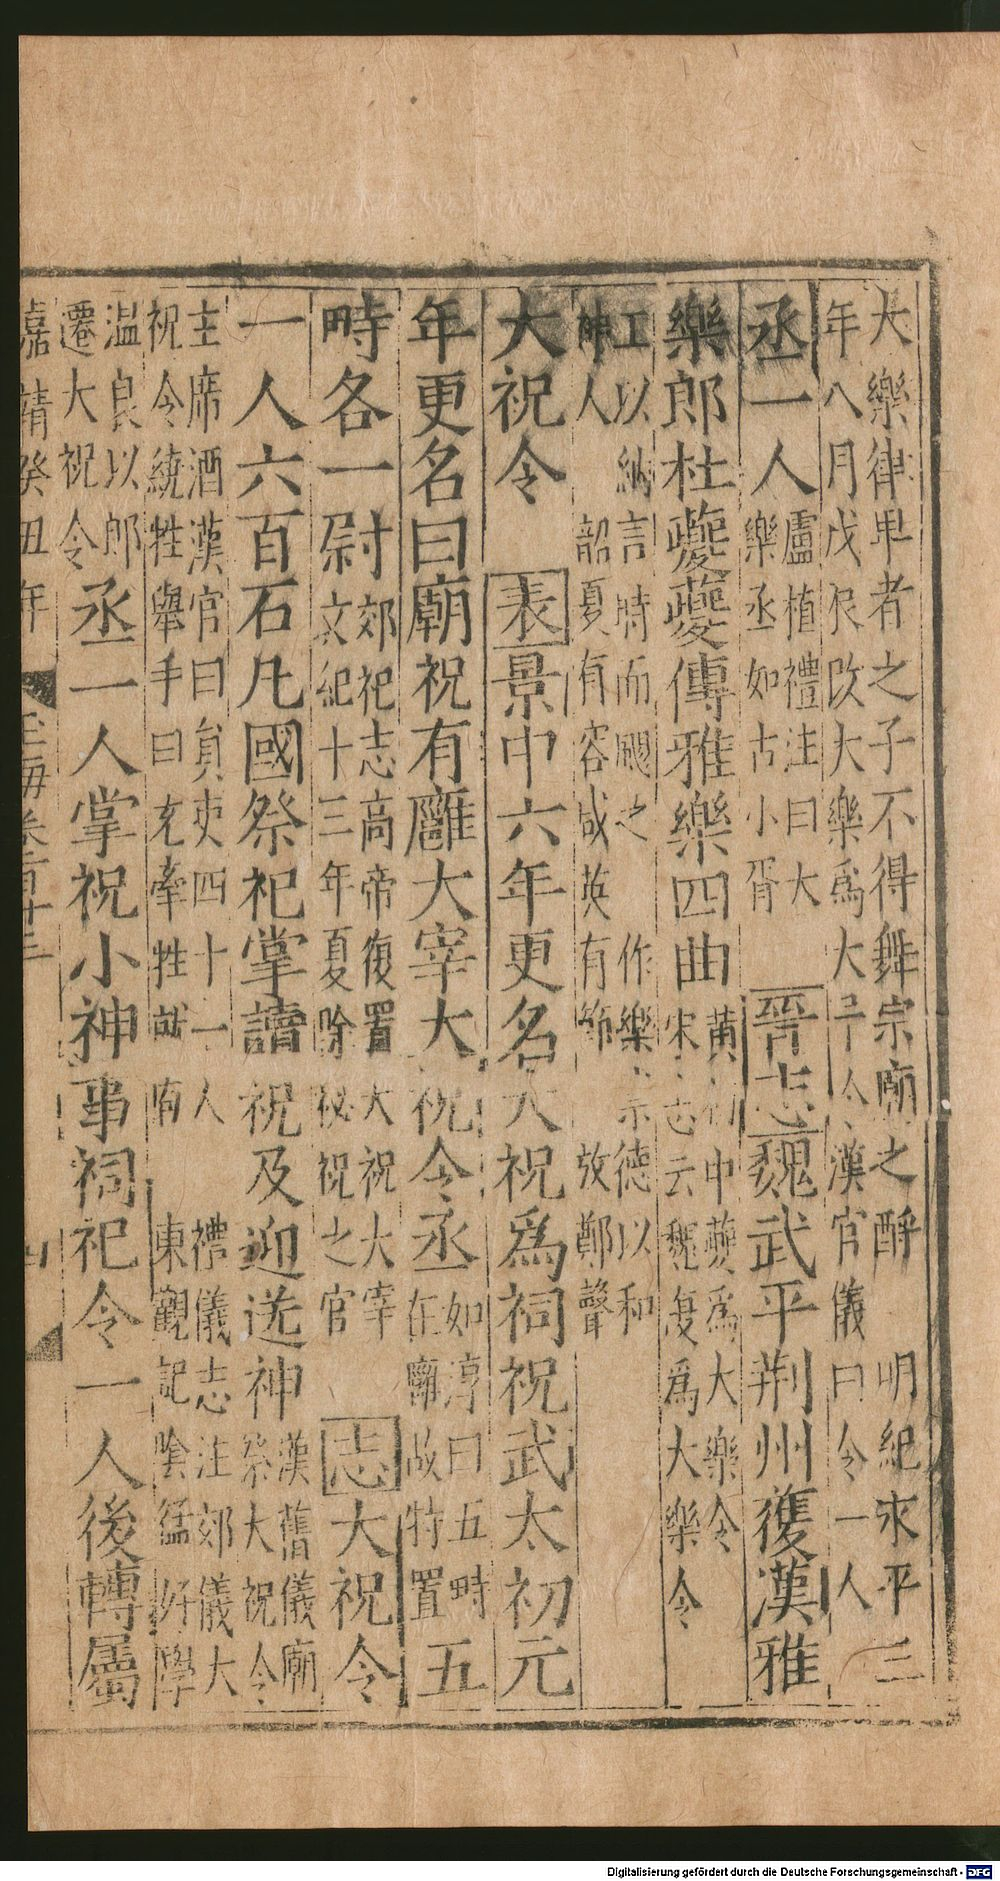 大樂律卑者之子不得舞宗廟之酎　明紀永平三
年八月戊辰改大樂為大予令漢官儀曰令一人
丞一人盧植禮注曰大
樂丞如古小胥晉志魏武平荆州獲漢雅
樂郎杜夔夔傳雅樂四曲黄初中夔為大樂令
宋志云魏復為大樂令
工以納言時而颺之　作樂崇德以和
神人　韶夏有容咸英有節　放鄭聲
大祝令　表景中六年更名大祝為祠祝武太初元
年更名曰廟祝有廱大宰大祝令丞如淳曰五畤
在廱故特置五
畤各一尉郊祀志高帝復置大祝大宰
文紀十三年夏除祕祝之官志大祝令
一人六百石凡國祭祀掌讀祝及迎送神漢舊儀廟
祭大祝令
主席酒漢官曰員吏四十一人　禮儀志注郊儀大
祝令繞牲舉手曰充牽牲就　東觀記陰猛好學
溫良以郎
遷大祝令丞一人掌祝小神事祠祀令一人後轉屬
嘉靖癸丑年　玉海卷百十三　四
Digitalisierung gefördert durch die Deutsche Forschungsgemeinschaft - DFG